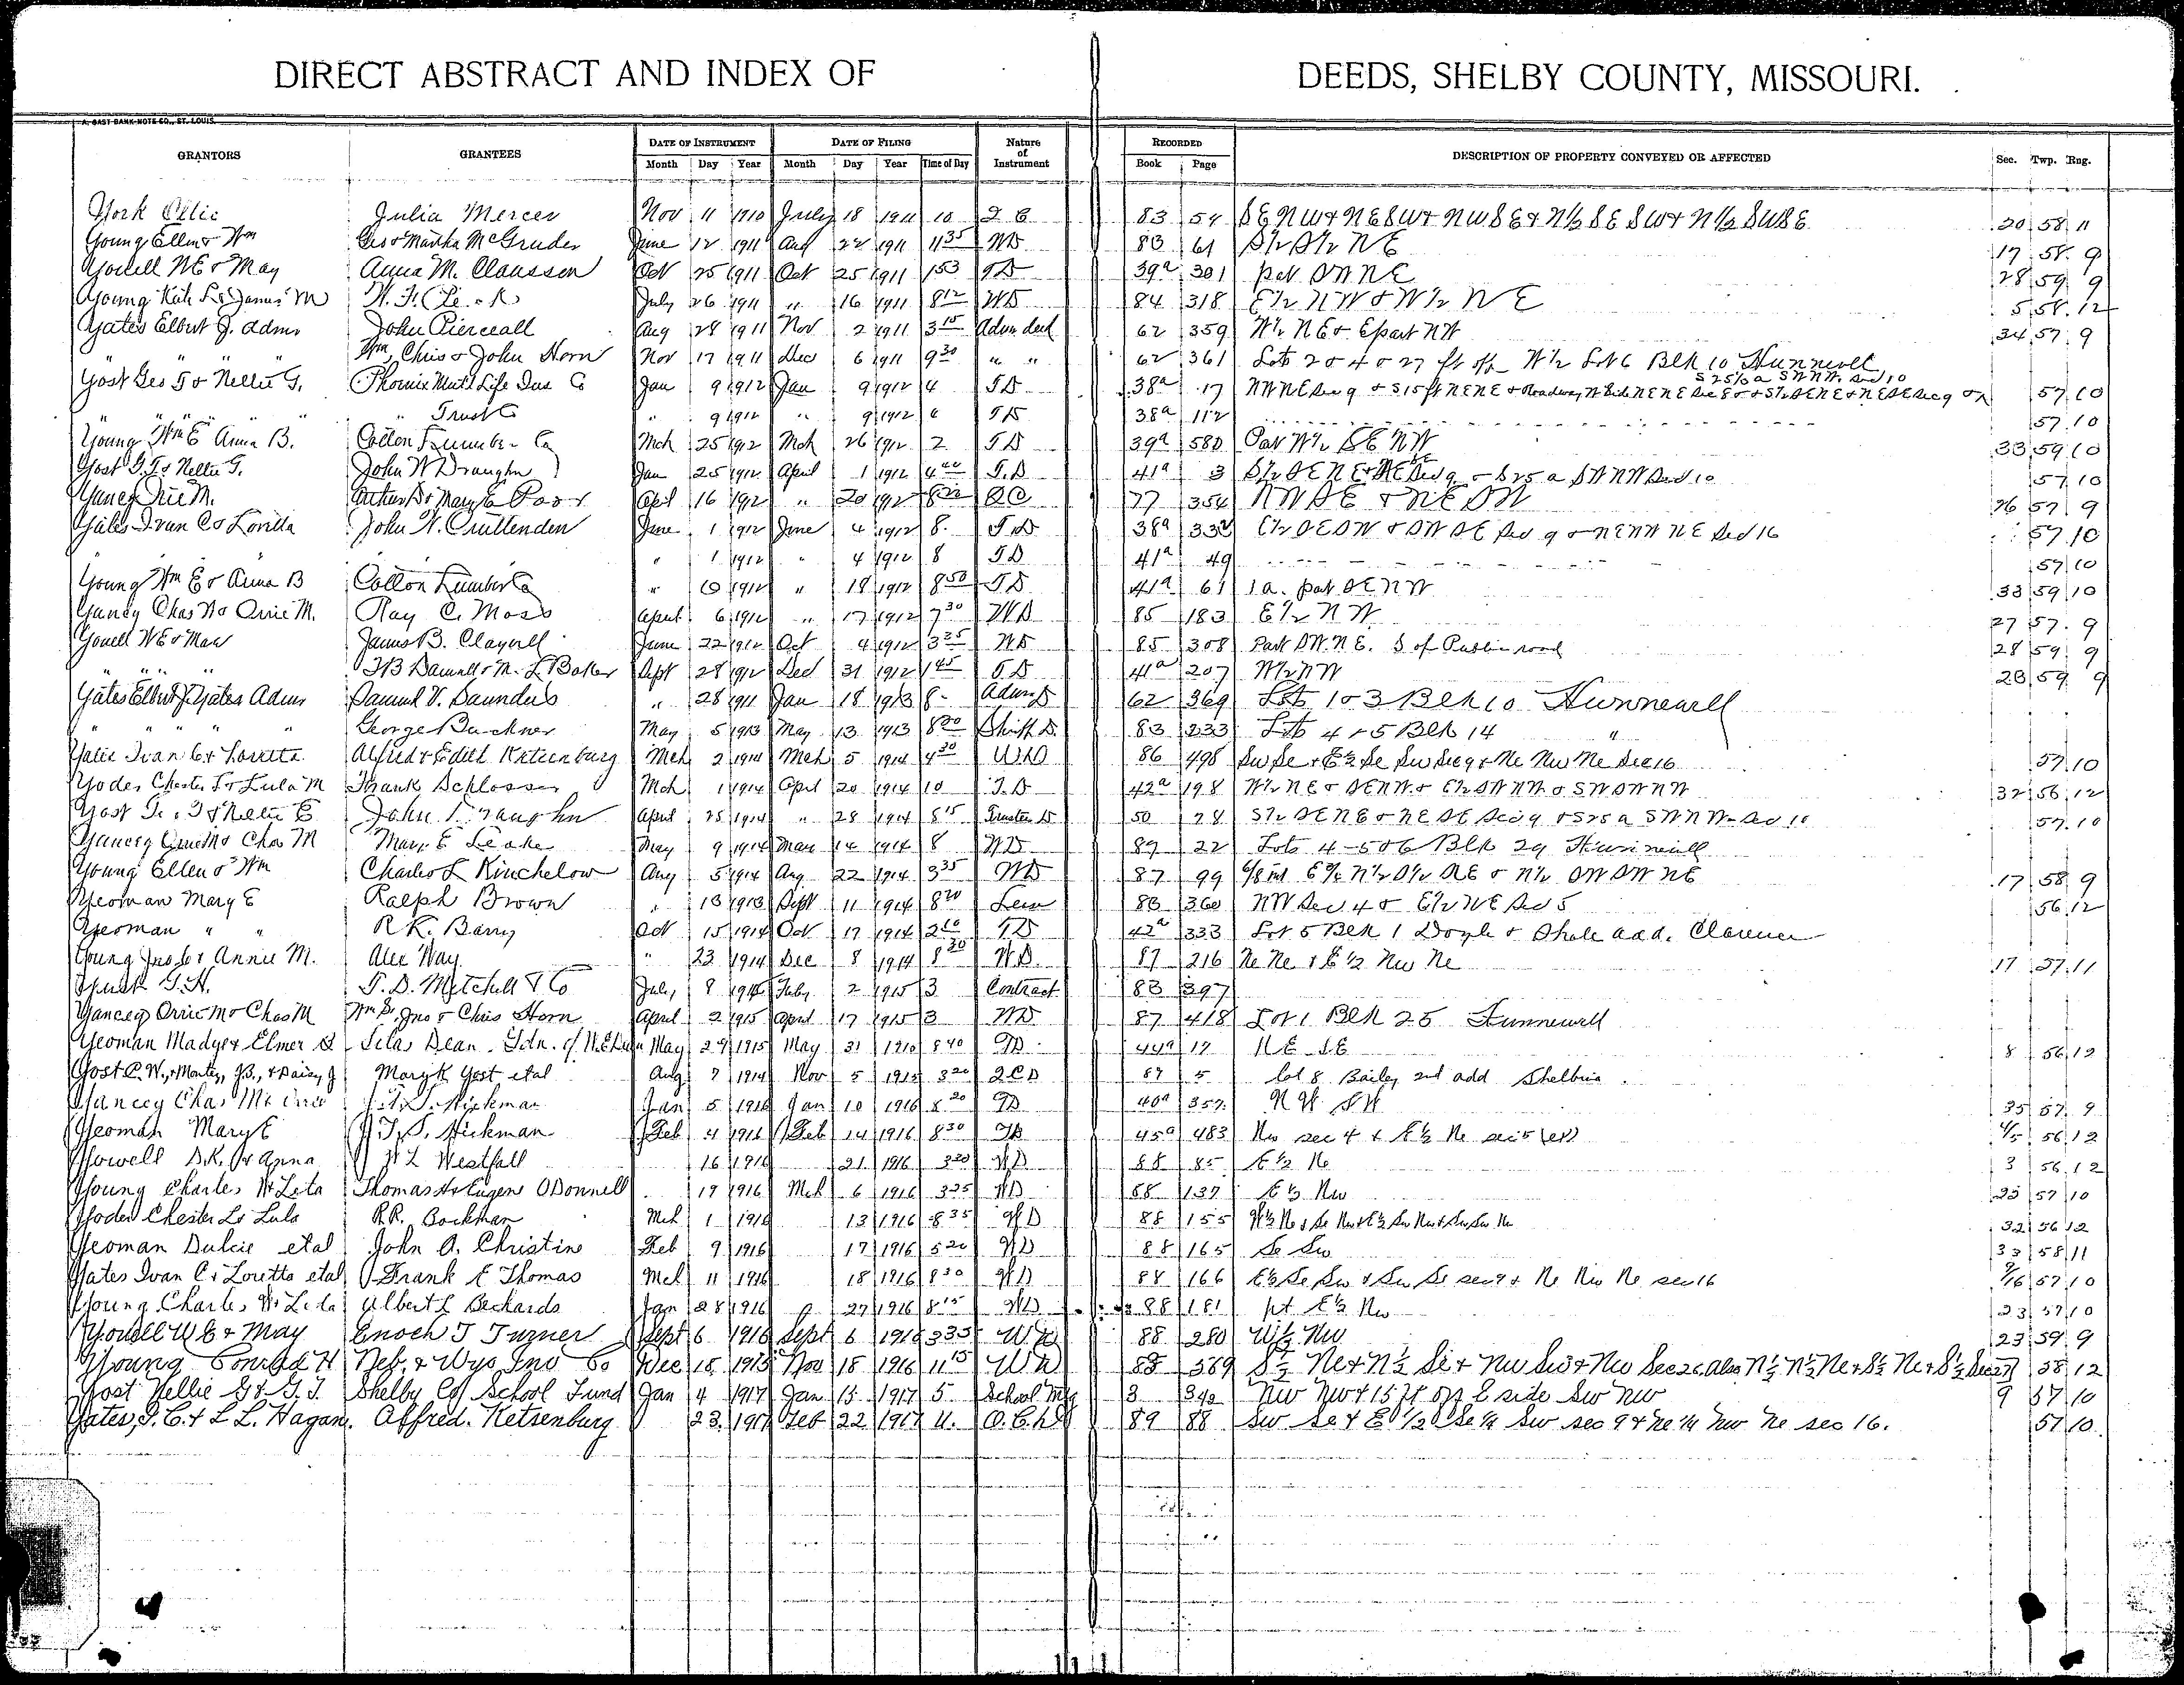 DIRECT ABSTRACT AND INDEX OF DEEDS, SHELBY COUNTY, MISSOURI.
A. GAST BANK NOTE CO., ST. LOUIS.
GRANTORS GRANTEES DATE OF INSTRUMENT Month Day Year DATE OF FILING Month Day Year Time of Day Nature of Instrument RECORDED Book Page DESCRIPTION OF PROPERTY CONVEYED OR AFFECTED Sec. Twp. Rng.
York Ollie Julia Mercer Nov 11 1910 July 18 1911 10 Q C 83 54 SE NW & NE SW & NW SE & N½ SE SW & N½ SW SE 20 58 11
Young Ellen & Wm Geo & Martha McGruder June 12 1911 Aug 22 1911 11 35 WD 83 61 S½ S½ NE 17 58 9
Yowell WE & May Anna M. Claussen Oct 25 1911 Oct 25 1911 1 53 TD 39a 301 part SW NE 28 59 9
Young Kate L & James M July 26 1911 " 16 1911 8 12 WD 84 318 E½ NW & W½ NE 5 58 12
Yates Elbert J. Admr John Pierceall Aug 28 1911 Nov 2 1911 3 15 Admr deed 62 359 W½ NE & E part NW 34 57 9
" " " Wm, Chris & John Horn Nov 17 1911 Dec 6 1911 9 30 " " 62 361 Lots 2 & 4 & 27 ft off W½ Lot 6 Blk 10 Hunnewell
Yost Geo T & Nellie G. Phoenix Mut'l Life Ins Co Jan 9 1912 Jan 9 1912 4 TD 38a 17 NW NE Sec 9 & S 15 ft NE NE & Roadway 57 10
" " " " Trust Co " 9 1912 " 9 1912 TD 38a 112 57 10
Young Wm E Anna B. Cotton Lumber Co Mch 25 1912 Mch 26 1912 2 TD 39a 580 Part W½ SE NW 33 59 10
Yost G.T. & Nellie G. John W Draughn Jan 25 1912 April 1 1912 4 T.D 41a 3 S½ SE NE & NE SE Sec 9 & S 25 a SW NW Sec 10 57 10
Yancey Orrie M. Arthur D & Mary E Poor April 16 1912 " 20 1912 QC 77 354 NW SE & NE SW 26 57 9
Yates Ivan C & Loretta John W. Cruttenden June 1 1912 June 4 1912 8 T.D 38a E½ SE SW & SW SE Sec 9 & NE NW NE Sec 16 57 10
" 1 1912 " 4 1912 8 TD 41a 49 57 10
Young Wm E & Anna B Cotton Lumber Co " 1912 " 18 1912 8 50 TD 41a 61 1 a. part SE NW 33 59 10
Yancey Chas M & Orrie M. Ray C. Moss April 6 1912 " 17 1912 7 30 WD 85 183 E½ NW 27 57 9
Yowell WE & May James B. Claywell June 22 1912 Oct 4 1912 3 35 WD 85 308 Part SW NE. S of Public road 28 59 9
" " " & M. L Baker Sept 28 1912 Dec 31 1912 1 45 TD 41a 207 W½ NW 28 59 9
Yates Elbert J Yates Admr Samuel V. Saunders " 28 1911 Jan 18 1913 8 Admr D 62 369 Lots 1 & 3 Blk 10 Hunnewell
" " " George Buckner May 5 1913 May 13 1913 8 Shff D. 83 233 Lots 4 & 5 Blk 14 "
Yates Ivan C & Loretta Alfred & Edith Ketsenburg Mch 2 1914 Mch 5 1914 4 30 WD 86 498 Sw Se & E½ Se Sw Sec 9 & Ne Nw Ne Sec 16 57 10
Yoder Chester L & Lula M Frank Schlosser Mch 1 1914 April 20 1914 10 T.D 42a 198 W½ NE & SE NW & E½ SW NW & SW SW NW 32 56 12
Yost G. T & Nellie G John Draughn April 25 1914 " 28 1914 8 15 Trustee D 50 28 S½ SE NE & NE SE Sec 9 & S 25 a SW NW Sec 10 57 10
Yancey Orrie M & Chas M Mary E Leake May 9 1914 May 14 1914 8 WD 89 22 Lots 4-5 & 6 Blk 29 Hunnewell
Young Ellen & Wm Charles L Kinchelow Aug 5 1914 Aug 22 1914 3 35 WD 87 99 17 58 9
Yeoman Mary E Ralph Brown " 13 1913 Sept 11 1914 8 20 Lease 83 360 NW Sec 4 & E½ NE Sec 5 56 12
Yeoman " " R K. Barry Oct 15 1914 Oct 17 1914 TD 42a 333 Lot 5 Blk 1 Doyle & Shale add. Clarence
Young Jno C & Annie M. Alex Way " 23 1914 Dec 8 1914 8 30 W.D. 87 216 Ne Ne & E½ Nw Ne 17 57 11
G.H. T. D. Mitchell & Co July 8 Feby 2 1915 3 Contract 83 397
Yancey Orrie M & Chas M Wm S, Jno & Chris Horn April 2 1915 April 17 1915 3 WD 87 418 Lot 1 Blk 25 Hunnewell
Yeoman Madge & Elmer Silas Dean. Gdn. of May 29 1915 May 31 8 40 TD 44a 17 NE SE 8 56 12
Yost P.W., & Montez, J.B., & Daisy J Mary K Yost etal Aug 7 1914 Nov 5 1915 3 20 QCD 89 5 lot 8 Bailey 2nd add Shelbina
Yancey Chas M & Orrie Hickman Jan 5 1916 Jan 10 1916 8 20 TD 40a 357 NW SW 35 57 9
Yeoman Mary E J.T.S. Hickman Feb 4 1916 Feb 14 1916 8 30 TD 45a 483 Nw sec 4 & E½ Ne sec 5 4/5 56 12
Yowell D.K. & Anna W L Westfall 16 1916 21 1916 3 20 WD 88 85 E½ Ne 3 56 12
Young Charles W & Leta Thomas H & Eugene O'Donnell 19 1916 Mch 6 1916 3 25 WD 88 137 E½ Nw 23 57 10
Yoder Chester L & Lula R.R. Bockman Mch 1 1916 13 1916 8 35 WD 88 155 W½ Ne & Se Nw & E½ Sw Nw & Sw Sw Nw 32 56 12
Yeoman Dulcie etal John A. Christine Feb 9 1916 17 1916 5 20 WD 88 165 Se Sw 33 58 11
Yates Ivan C & Loretta etal Frank E Thomas Mch 11 1916 18 1916 8 30 WD 88 166 E½ Se Sw & Sw Se sec 9 & Ne Nw Ne sec 16 9/16 57 10
Young Charles W & Leta Albert L Beckards Jan 28 1916 27 1916 8 15 WD 88 181 pt E½ Nw 23 57 10
Yowell W E & May Enoch T Turner Sept 6 1916 Sept 6 1916 3 35 WD 88 280 W½ Nw 23 59 9
Young Conrad H Neb. & Wyo Inv Co Dec 15 1915 Nov 18 1916 11 15 WD 88 369 S½ Ne & N½ Se & Nw Sw & Nw Sec 26 also N½ N½ Ne & S½ Ne & S½ Sec 27 58 12
Yost Nellie G & G. T. Shelby Co School Fund Jan 4 1917 Jan 15 1917 5 School Mtg 3 342 Nw Nw & 15 ft off E side Sw Nw 9 57 10
Yates, I. C. & L L. Hagan. Alfred. Ketsenburg 23 1917 Feb 22 1917 11. Q.C.D 89 88 Sw Se & E½ Se ¼ Sw sec 9 & Ne ¼ Nw Ne sec 16. 57 10